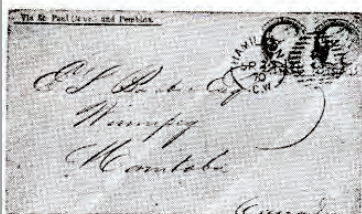 Via St. Paul (Minn.) and Pembina.
HAMILTON
SP
70
C.W.
Esq
Winnipeg
Manitoba
Canada